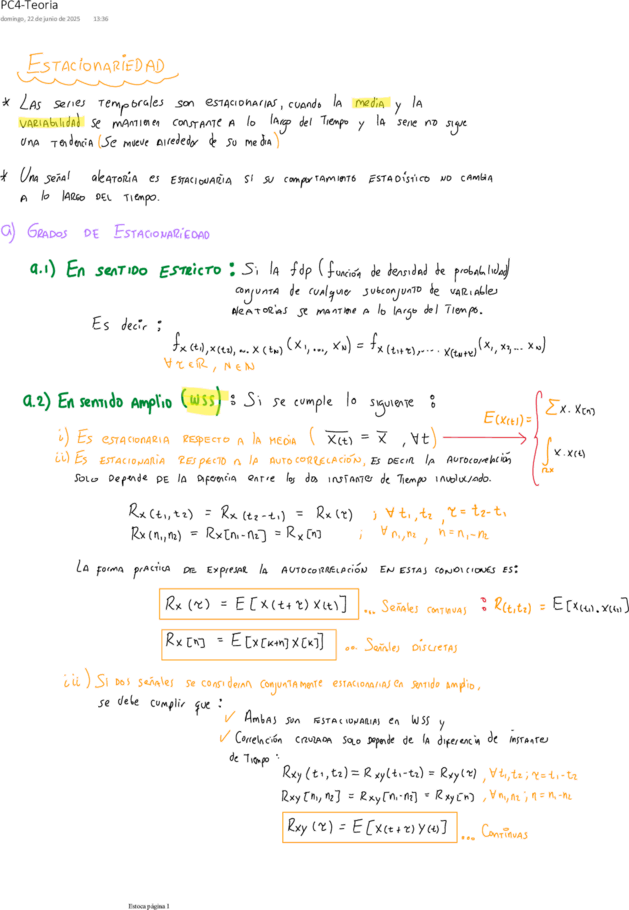 PC4-Teoria
domingo, 22 de junio de 2025 13:36
ESTACIONARIEDAD
* LAS series TEMPORALES SON ESTACIONARIAS, CUANDO LA media y LA
VARIABILIDAD se MANTIENEN CONSTANTE A lo largo del Tiempo y la serie no sigue
UNA TENDENCIA (Se mueve alrededor de su media)
* UNA SEÑAL ALEATORIA es ESTACIONARIA SI SU COMPORTAMIENTO ESTADÍSTICO NO CAMBIA
A lo LARGO DEL TIEMPO.
a) GRADOS DE ESTACIONARIEDAD
a.1) En SENTIDO ESTRICTO : Si LA fdp (función de densidad de probabilidad)
conjunta de cualquier subconjunto de VARIABLES
ALEATORIAS se MANTIENE A lo largo del Tiempo.
Es decir :
f_X(t1),X(t2),... X(tN) (X1,..., XN) = f_X(t1+τ),.... X(tN+τ) (X1, X2,... XN)
∀τ∈ℝ, N∈ℕ
a.2) En sentido Amplio (WSS) : Si se cumple lo siguiente :
i) Es ESTACIONARIA RESPECTO A LA MEDIA ( X̅(̅t̅)̅ = X̅ , ∀t)
E(X(t)) = { ∑ X. X[n]
∫ X. X(t)
ii) Es ESTACIONARIA RESPECTO A LA AUTOCORRELACIÓN, es DECIR LA AUTOCORRELACIÓN
SOLO DEPENDE DE LA DIFERENCIA ENTRE LOS DOS INSTANTES DE TIEMPO INVOLUCRADO.
Rx(t1,t2) = Rx(t2-t1) = Rx(τ) ; ∀t1,t2, τ=t2-t1
Rx(n1,n2) = Rx[n1-n2] = Rx[n] ; ∀n1,n2, n=n1-n2
LA FORMA PRACTICA DE EXPRESAR LA AUTOCORRELACIÓN EN ESTAS CONDICIONES ES:
Rx(τ) = E[X(t+τ)X(t)] ... Señales continuas : R(t1t2) = E[X(t1).X(t2)]
Rx[n] = E[X[k+n]X[k]] ... Señales DISCRETAS
iii) Si DOS señales se consideran conjuntamente estacionarias en sentido amplio,
se debe cumplir que :
✓ Ambas son ESTACIONARIAS en WSS y
✓ Correlación CRUZADA SOLO Depende de la diferencia de instantes
de Tiempo :
Rxy(t1,t2) = Rxy(t1-t2) = Rxy(τ) , ∀t1,t2 ; τ=t1-t2
Rxy[n1,n2] = Rxy[n1-n2] = Rxy[n] , ∀n1,n2 ; n=n1-n2
Rxy(τ) = E[X(t+τ)Y(t)] ... Continuas
Estoca página 1